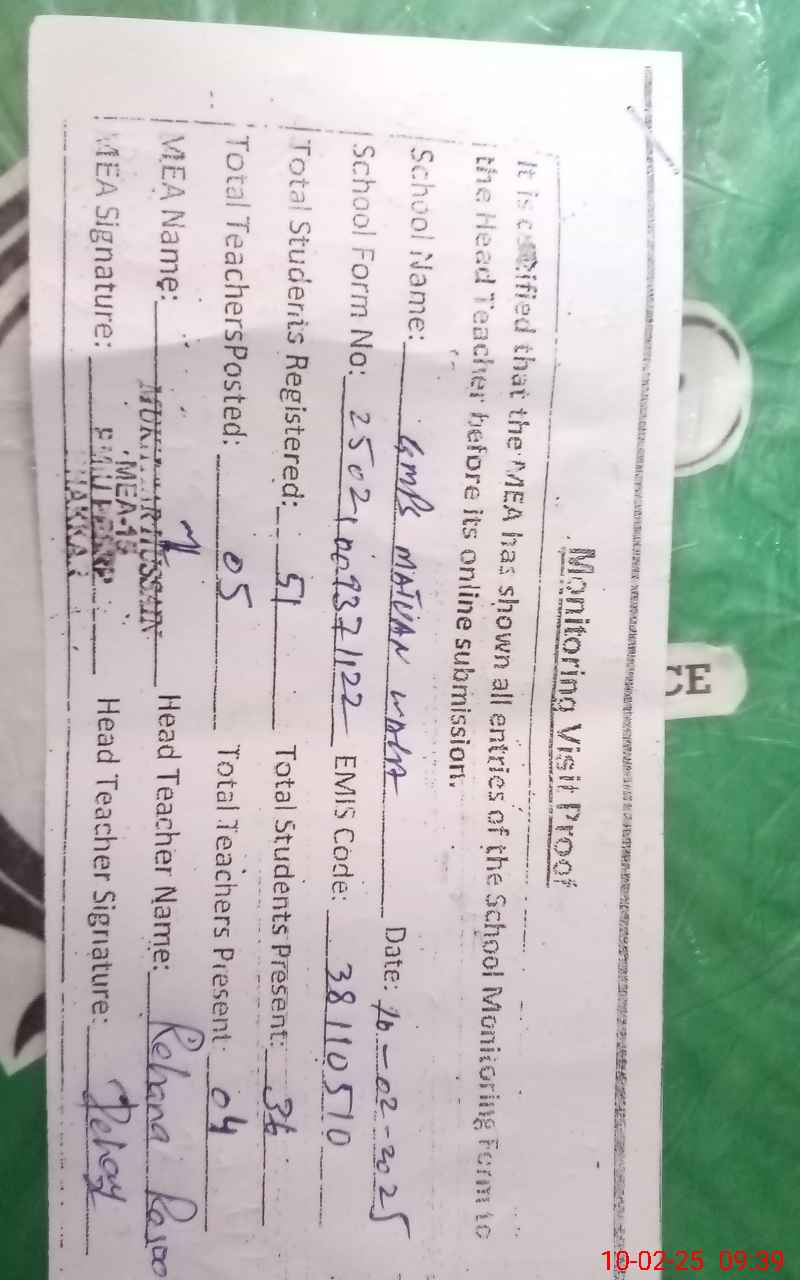 Monitoring Visit Proof
It is certified that the MEA has shown all entries of the School Monitoring Form to
the Head Teacher before its online submission.
School Name: GMPS MATVAN WALA Date: 10-02-2025
School Form No: 25021009371122 EMIS Code: 38110510
Total Students Registered: 51 Total Students Present: 36
Total TeachersPosted: 05 Total Teachers Present: 04
MEA Name: HUSSAIN Head Teacher Name: Rehana
MEA-13
MEA Signature: Head Teacher Signature:
CE
10-02-25 09:39